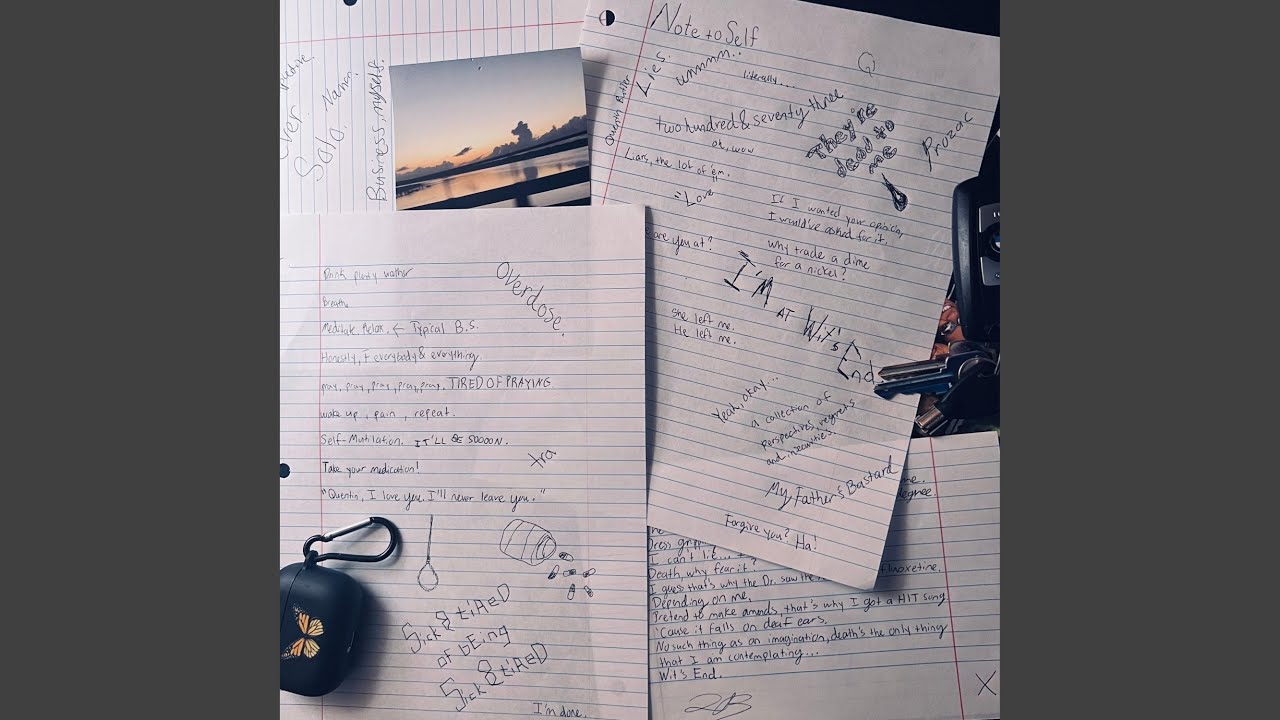 Over
Solo.
Names.
Business, myself.
Note to Self
Quentin Butler
Lies.
ummm..
literally...
Q
two hundred & seventy three
oh, wow
They're
dead to
me
Prozac
Liars, the lot of em.
= Love
If I wanted your opinion,
I would've asked for it.
are you at?
why trade a dime
for a nickel?
I'M AT Wit's End
She left me.
He left me.
Yeah, okay...
a collection of
perspectives, regrets
and insecurities.
My Father's Bastard
Forgive you? Ha!
Overdose.
Drink plenty wather
Breath.
Meditate Relax. ← Typical B.S.
Honestly, F everybody & everything.
pray, pray, pray, pray, pray. TIRED OF PRAYING
wake up, pain, repeat.
Self-Mutilation. IT'LL BE SOOOON.
xtra
Take your medication!
"Quentin, I love you. I'll never leave you."
Sick & tiReD
of bEing
Sick & tiReD
I'm done.
me.
degree
Dress
I can't
Death, why fear it?
I guess that's why the Dr. saw the fluoxetine.
Depending on me,
Pretend to make amends, that's why I got a HIT song
'Cause it falls on deaf ears.
No such thing as an imagination, death's the only thing
that I am contemplating...
Wit's End.
QB
X